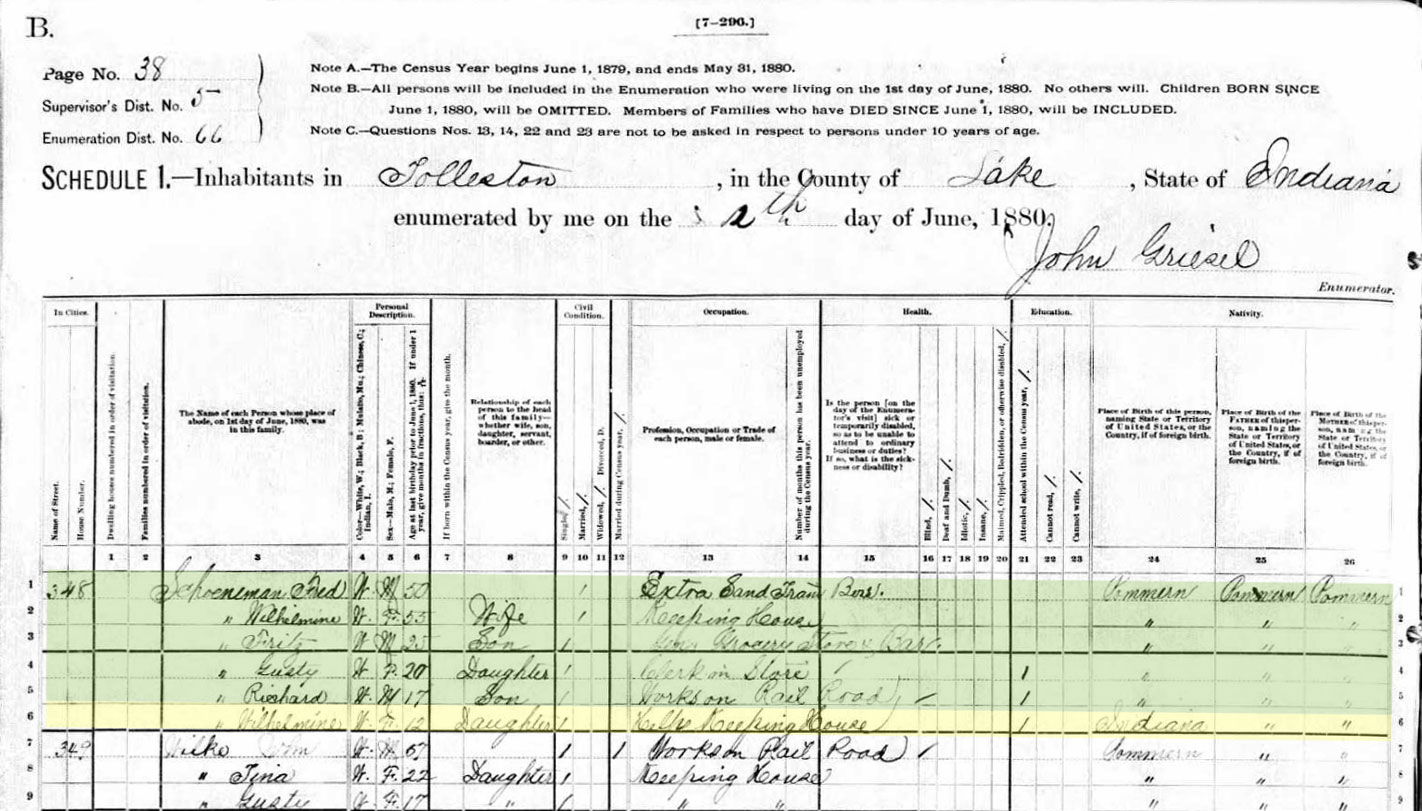 B.
[7-296.]
Page No. 38
Supervisor's Dist. No. 5
Enumeration Dist. No. 66
Note A.—The Census Year begins June 1, 1879, and ends May 31, 1880.
Note B.—All persons will be included in the Enumeration who were living on the 1st day of June, 1880. No others will. Children BORN SINCE
June 1, 1880, will be OMITTED. Members of Families who have DIED SINCE June 1, 1880, will be INCLUDED.
Note C.—Questions Nos. 13, 14, 22 and 23 are not to be asked in respect to persons under 10 years of age.
SCHEDULE 1.—Inhabitants in Tolleston, in the County of Lake, State of Indiana
enumerated by me on the th day of June, 1880.
John Griesel
Enumerator.
In Cities.
Name of Street.
House Number.
Dwelling houses numbered in order of visitation.
Families numbered in order of visitation.
The Name of each Person whose place of abode, on 1st day of June, 1880, was in this family.
Personal Description.
Color—White, W.; Black, B.; Mulatto, Mu.; Chinese, C.; Indian, I.
Sex—Male, M.; Female, F.
Age at last birthday prior to June 1, 1880. If under 1 year, give months in fractions, thus:
If born within the Census year, give the month.
Relationship of each person to the head of this family—whether wife, son, daughter, servant, boarder, or other.
Civil Condition.
Single, /.
Married, /.
Widowed, /. Divorced, D.
Married during Census year, /.
Occupation.
Profession, Occupation or Trade of each person, male or female.
Number of months this person has been unemployed during the Census year.
Health.
Is the person [on the day of the Enumerator's visit] sick or temporarily disabled, so as to be unable to attend to ordinary business or duties? If so, what is the sickness or disability?
Blind, /.
Deaf and Dumb, /.
Idiotic, /.
Insane, /.
Maimed, Crippled, Bedridden, or otherwise disabled, /.
Education.
Attended school within the Census year, /.
Cannot read, /.
Cannot write, /.
Nativity.
Place of Birth of this person, naming State or Territory of United States, or the Country, if of foreign birth.
Place of Birth of the FATHER of this person, naming the State or Territory of United States, or the Country, if of foreign birth.
Place of Birth of the MOTHER of this person, naming the State or Territory of United States, or the Country, if of foreign birth.
1 2 3 4 5 6 7 8 9 10 11 12 13 14 15 16 17 18 19 20 21 22 23 24 25 26
1 348 Schoeneman Fred W. M 50 / Extra Sand Train Boss. Pommern Pommern Pommern 1
2 " Wilhelmine W. F. 55 Wife / Keeping House " " " 2
3 " Fritz W. M 25 Son / Grocery Store & Bar. " " " 3
4 " Gusty W. F. 20 Daughter / Clerk in Store / 1 " " " 4
5 " Richard W. M 17 Son / Works on Rail Road / 1 " " " 5
6 " Wilhelmine W. F. 12 Daughter / Helps Keeping House 1 Indiana " " 6
7 349 Wilke John W. M. 57 1 1 Works on Rail Road / Pommern " " 7
8 " Tina W. F. 22 Daughter / Keeping House " " " 8
9 " Gusty W. F. 17 " / " " " " " 9